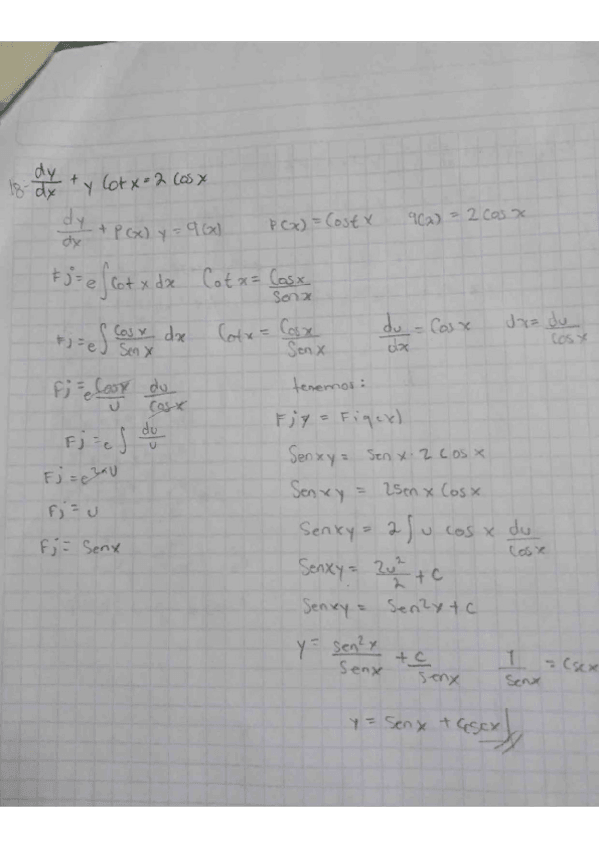 18- dy/dx + y Cot x = 2 Cos x
dy/dx + P(x) y = q(x) P(x) = Cost x q(x) = 2 Cos x
Fj = e∫Cot x dx Cot x = Cosx/Senx
Fj = e∫ Cosx/Senx dx Cotx = Cosx/Senx du/dx = Cosx dx = du/Cosx
Fj = e Cosx/u du/Cosx
Fj = e∫ du/u
Fj = u
Fj = Senx
tenemos:
Fjy = Fiq(x)
Senxy = Sen x · 2 Cos x
Senxy = 2Sen x Cosx
Senxy = 2∫u cos x du/Cosx
Senxy = 2u²/2 + C
Senxy = Sen²x + C
y = Sen²x/Senx + C/Senx 1/Senx = Cscx
y = Senx + Ccscx